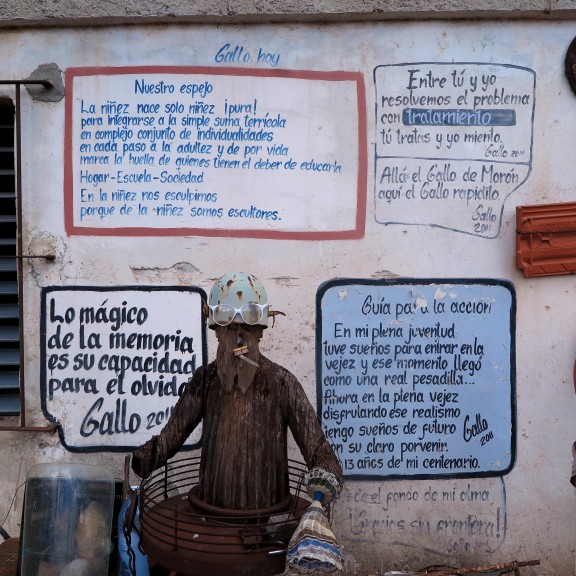 Gallo, hoy
Nuestro espejo
La niñez nace solo niñez ¡pura!
para integrarse a la simple suma terrícola
en complejo conjunto de individualidades
en cada paso a la adultez y de por vida
marca la huella de quienes tienen el deber de educarla
Hogar-Escuela-Sociedad
En la niñez nos esculpimos
porque de la niñez somos escultores.
Entre tú y yo
resolvemos el problema
con tratamiento
tú tratas y yo miento.
Gallo 2011
Allá el Gallo de Morón
aquí el Gallo rapidito.
Gallo
2011
Lo mágico
de la memoria
es su capacidad
para el olvido
Gallo 2011
Guía para la acción
En mi plena juventud
tuve sueños para entrar en la
vejez y ese momento llegó
como una real pesadilla...
Ahora en la plena vejez
disfrutando ese realismo
tengo sueños de futuro
en su claro porvenir.
13 años de mi centenario.
Gallo
2011
el fondo de mi alma
¡Gracias sin frontera!